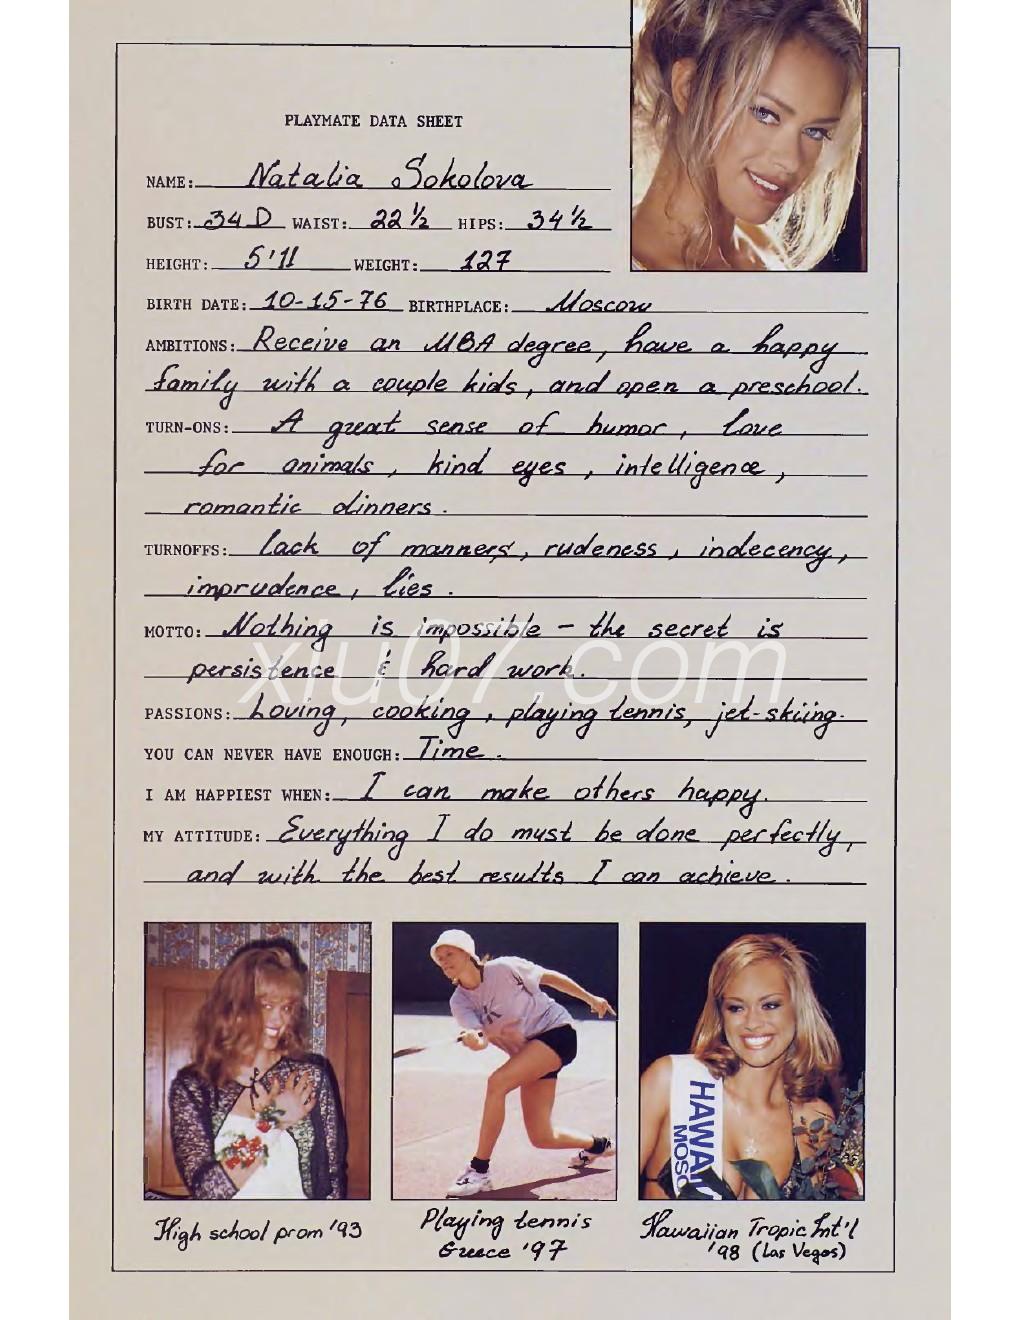 PLAYMATE DATA SHEET
NAME: Natalia Sokolova
BUST: 34 D WAIST: 22 ½ HIPS: 34 ½
HEIGHT: 5'11 WEIGHT: 127
BIRTH DATE: 10-15-76 BIRTHPLACE: Moscow
AMBITIONS: Receive an MBA degree, have a happy
family with a couple kids, and open a preschool.
TURN-ONS: A great sense of humor, love
for animals, kind eyes, intelligence,
romantic dinners.
TURNOFFS: lack of manners, rudeness, indecency,
imprudence, lies.
MOTTO: Nothing is impossible – the secret is
persistence & hard work.
xiu07.com
PASSIONS: Loving, cooking, playing tennis, jet-skiing.
YOU CAN NEVER HAVE ENOUGH: Time.
I AM HAPPIEST WHEN: I can make others happy.
MY ATTITUDE: Everything I do must be done perfectly,
and with the best results I can achieve.
HAWAII
MOSC
High school prom '93
Playing tennis
Greece '97
Hawaiian Tropic Int'l
'98 (Las Vegas)